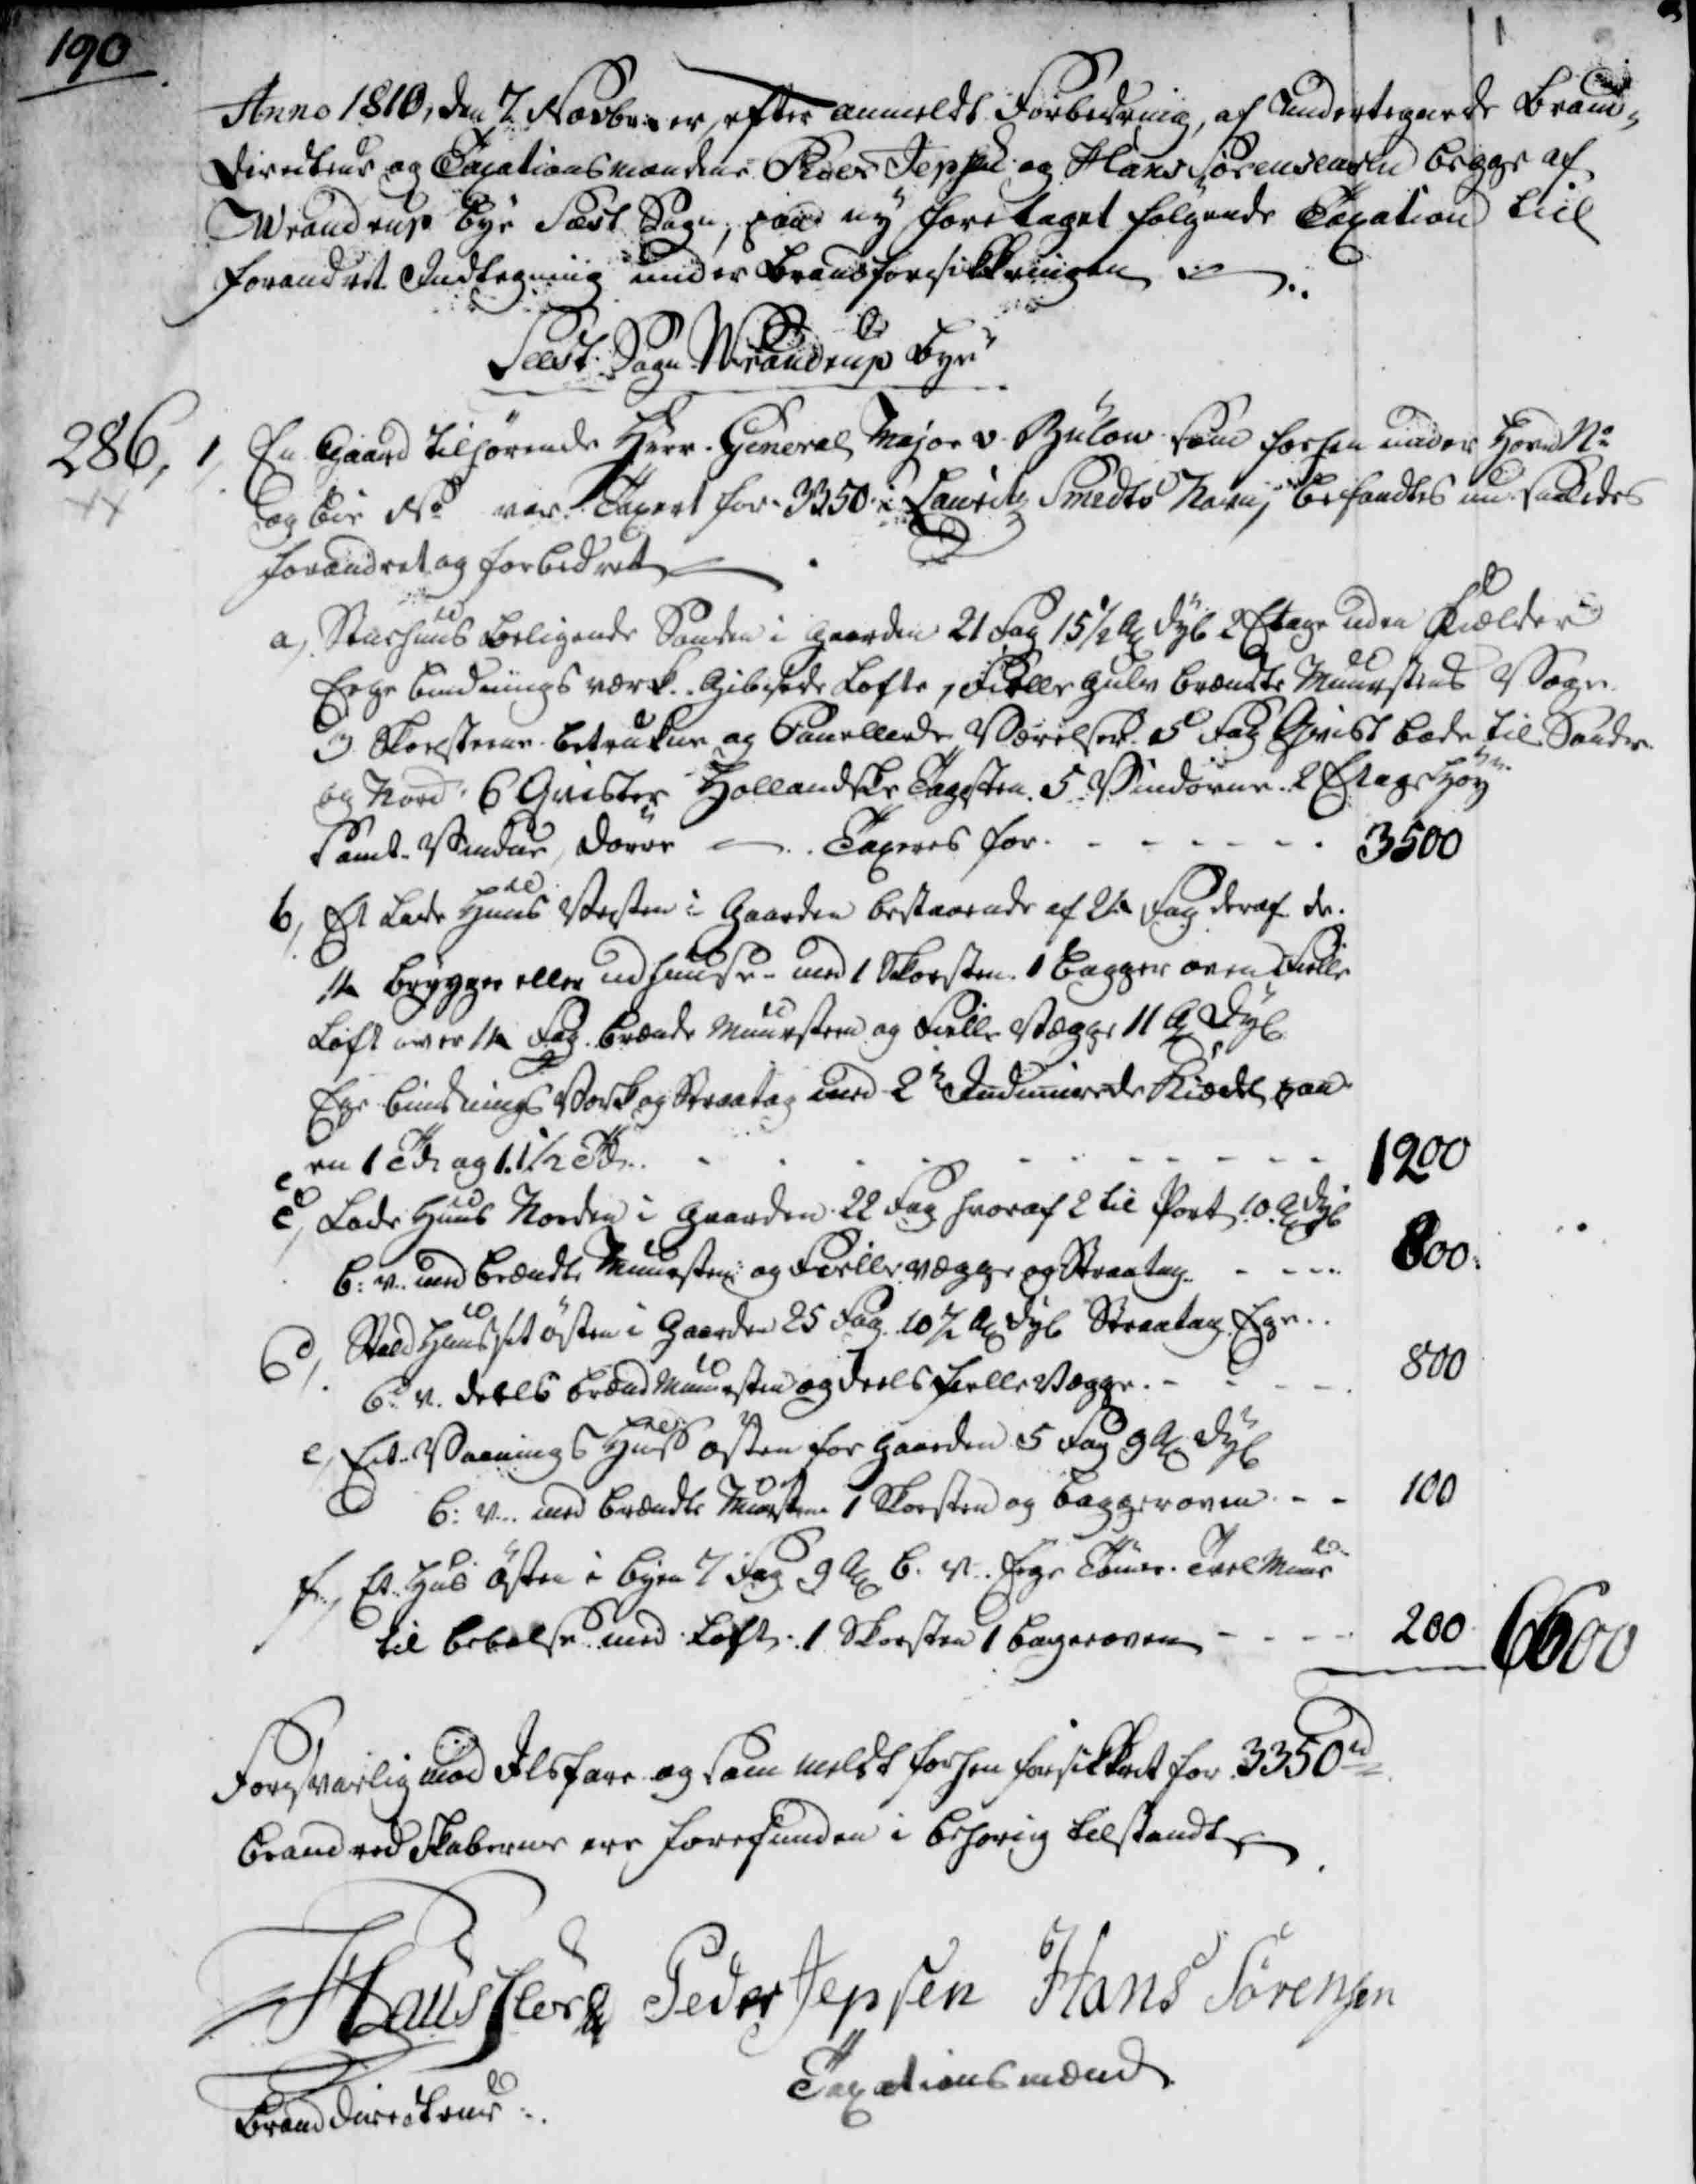 190
Anno 1810, den 7 Novbr: er, efter anmeldt Forbedring, af Undertegnede Brand-
Direkteur og Taxationsmændene Peder Jepsen og Hans Sørensen begge af
Wrandrup Bye Seest Sogn, paa ny foretaget følgende Taxation til
forandret Indtegning under Brandforsikkringen
Seest Sogn Wrandrup Bye
286, 1, En Gaard tilhørende Herr General Major v. Bülow som forhen under Hoved No
og bie No var Taxeret for 3350 i Lauritz Smedts Navn, befandtes nu saaledes
forandret og forbedret
a, Stuehuus beligende Sønden i Gaarden 21 Fag 15 1/2 Al Dyb 2 Etage uden Kielder
Eege bindnings værk. Gibsede Lofte, Fielle Gulv brændte Muurstens Væge
3 Skorstene betrukne og Panellede Værelser 5 Fag Qvist bode til Sønder
og Nord 6 Qvister Hollandske Tagsten. 5 Vindovne 2 Etage Høy
samt Vinduer, Dørre Taxeres for 3500
b, Et Lade Huus Vesten i Gaarden bestaaende af 24 Fag deraf de
14 brygger eller udhuuse med 1 Skorsten 1 bagger oven Fielle
Loft over 14 Fag brænde Muursteen og Fielle Vægge 11 Al Dyb
Ege bindnings Værk og Straatag med 2de Indmurede Kiedel paa
en 1 Td og 1. 1 1/2 Td 1200
c, Lade Huus Norden i Gaarden 22 Fag hvoraf 2 til Port 10 Al Dyb
b: v. med brændte Muursten og Fielle vægge og Straatag 800
d, Stald Huuset østen i Gaarden 25 Fag 10 1/2 Al Dyb Straatag Ege
b: v. deels brænd Muursten og deels fielle Vægge 800
e, Et Vaanings Huus østen for Gaarden 5 Fag 9 Al Dyb
b: v. med brændte Muursten 1 Skorsten og baggeroven 100
f, Et Huus østen i Byen 7 Fag 9 Al b. v. Ege Tømmer Muur
til bebolse med Loft 1 Skorsten 1 bageroven 200 6600
Forsvarlig mod Ilsfare og som meldt forhen forsikkret for 3350 rd
Brandredskaberne ere forefunden i behørig tilstandt
Peder Jepsen Hans Sørensen
Taxationsmænd
Brand Directeur